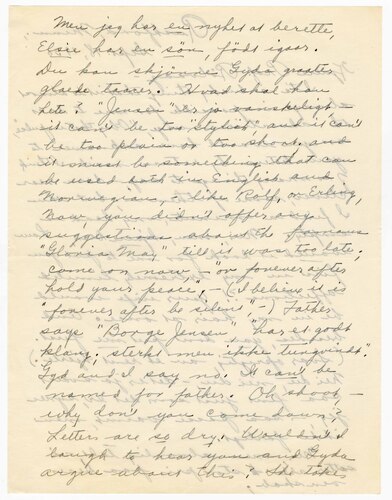 Men jeg har en nyhet at berette,
Elsie har en søn, født igaar.
Du kan skjønne Gyda graater
glæde taarer. Hvad skal han
hete? "Jensen" er jo vanskeligt -
it can't be too "stylish" and it can't
be too plain or too short, and
it must be something that can
be used both in English and
Norwegian, - like Rolf, or Erling,
Now you didn't offer any
suggestions about the famous
"Gloria May" till it was too late,
come on now, - "or forever after
hold your peace", - (I believe it is
"forever after be silent", -) Father
says "Borge Jensen" "har et godt
klang; sterkt men ikke tungvindt".
Gyd and I say no. It can't be
named for father. Oh shoot -
why don't you come down?
Letters are so dry. Wouldn't
laugh to hear you and Gyda
argue about this! She takes